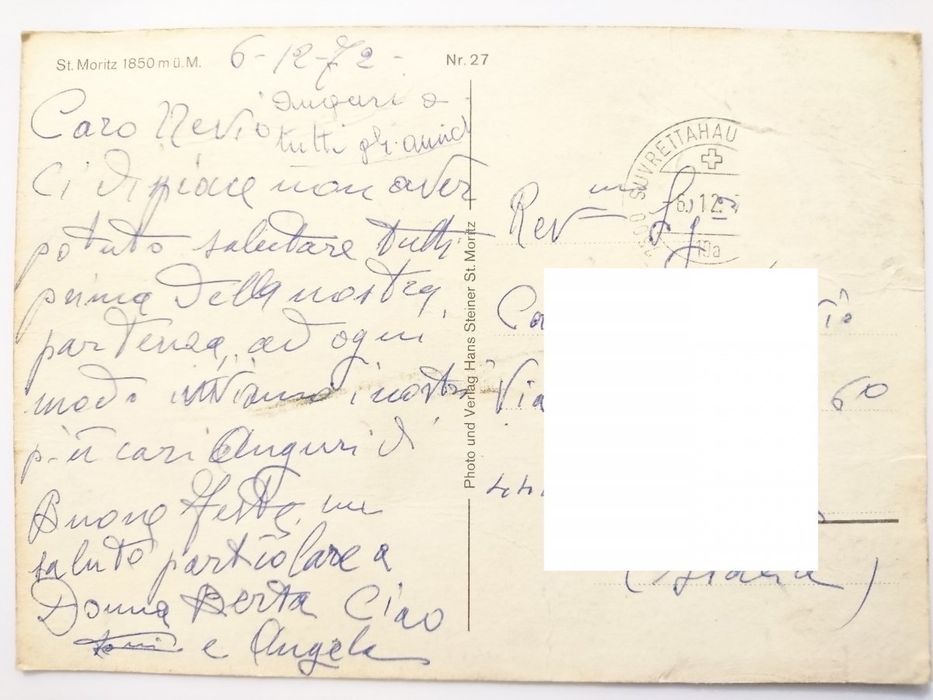 St. Moritz 1850 m ü. M.
6-12-72-
Nr. 27
Caro Nevio
auguri a
tutti gli amici
Ci dispiace non aver
potuto salutare tutti
prima della nostra
partenza, ad ogni
modo inviamo i nostri
più cari Auguri di
Buone Feste, un
saluto particolare a
Donna Berta Ciao
Toni e Angela
Photo und Verlag Hans Steiner St. Moritz
SUVRETTAHAU
6.12.
Rev Sg
Ca
Via 60
(Italia)